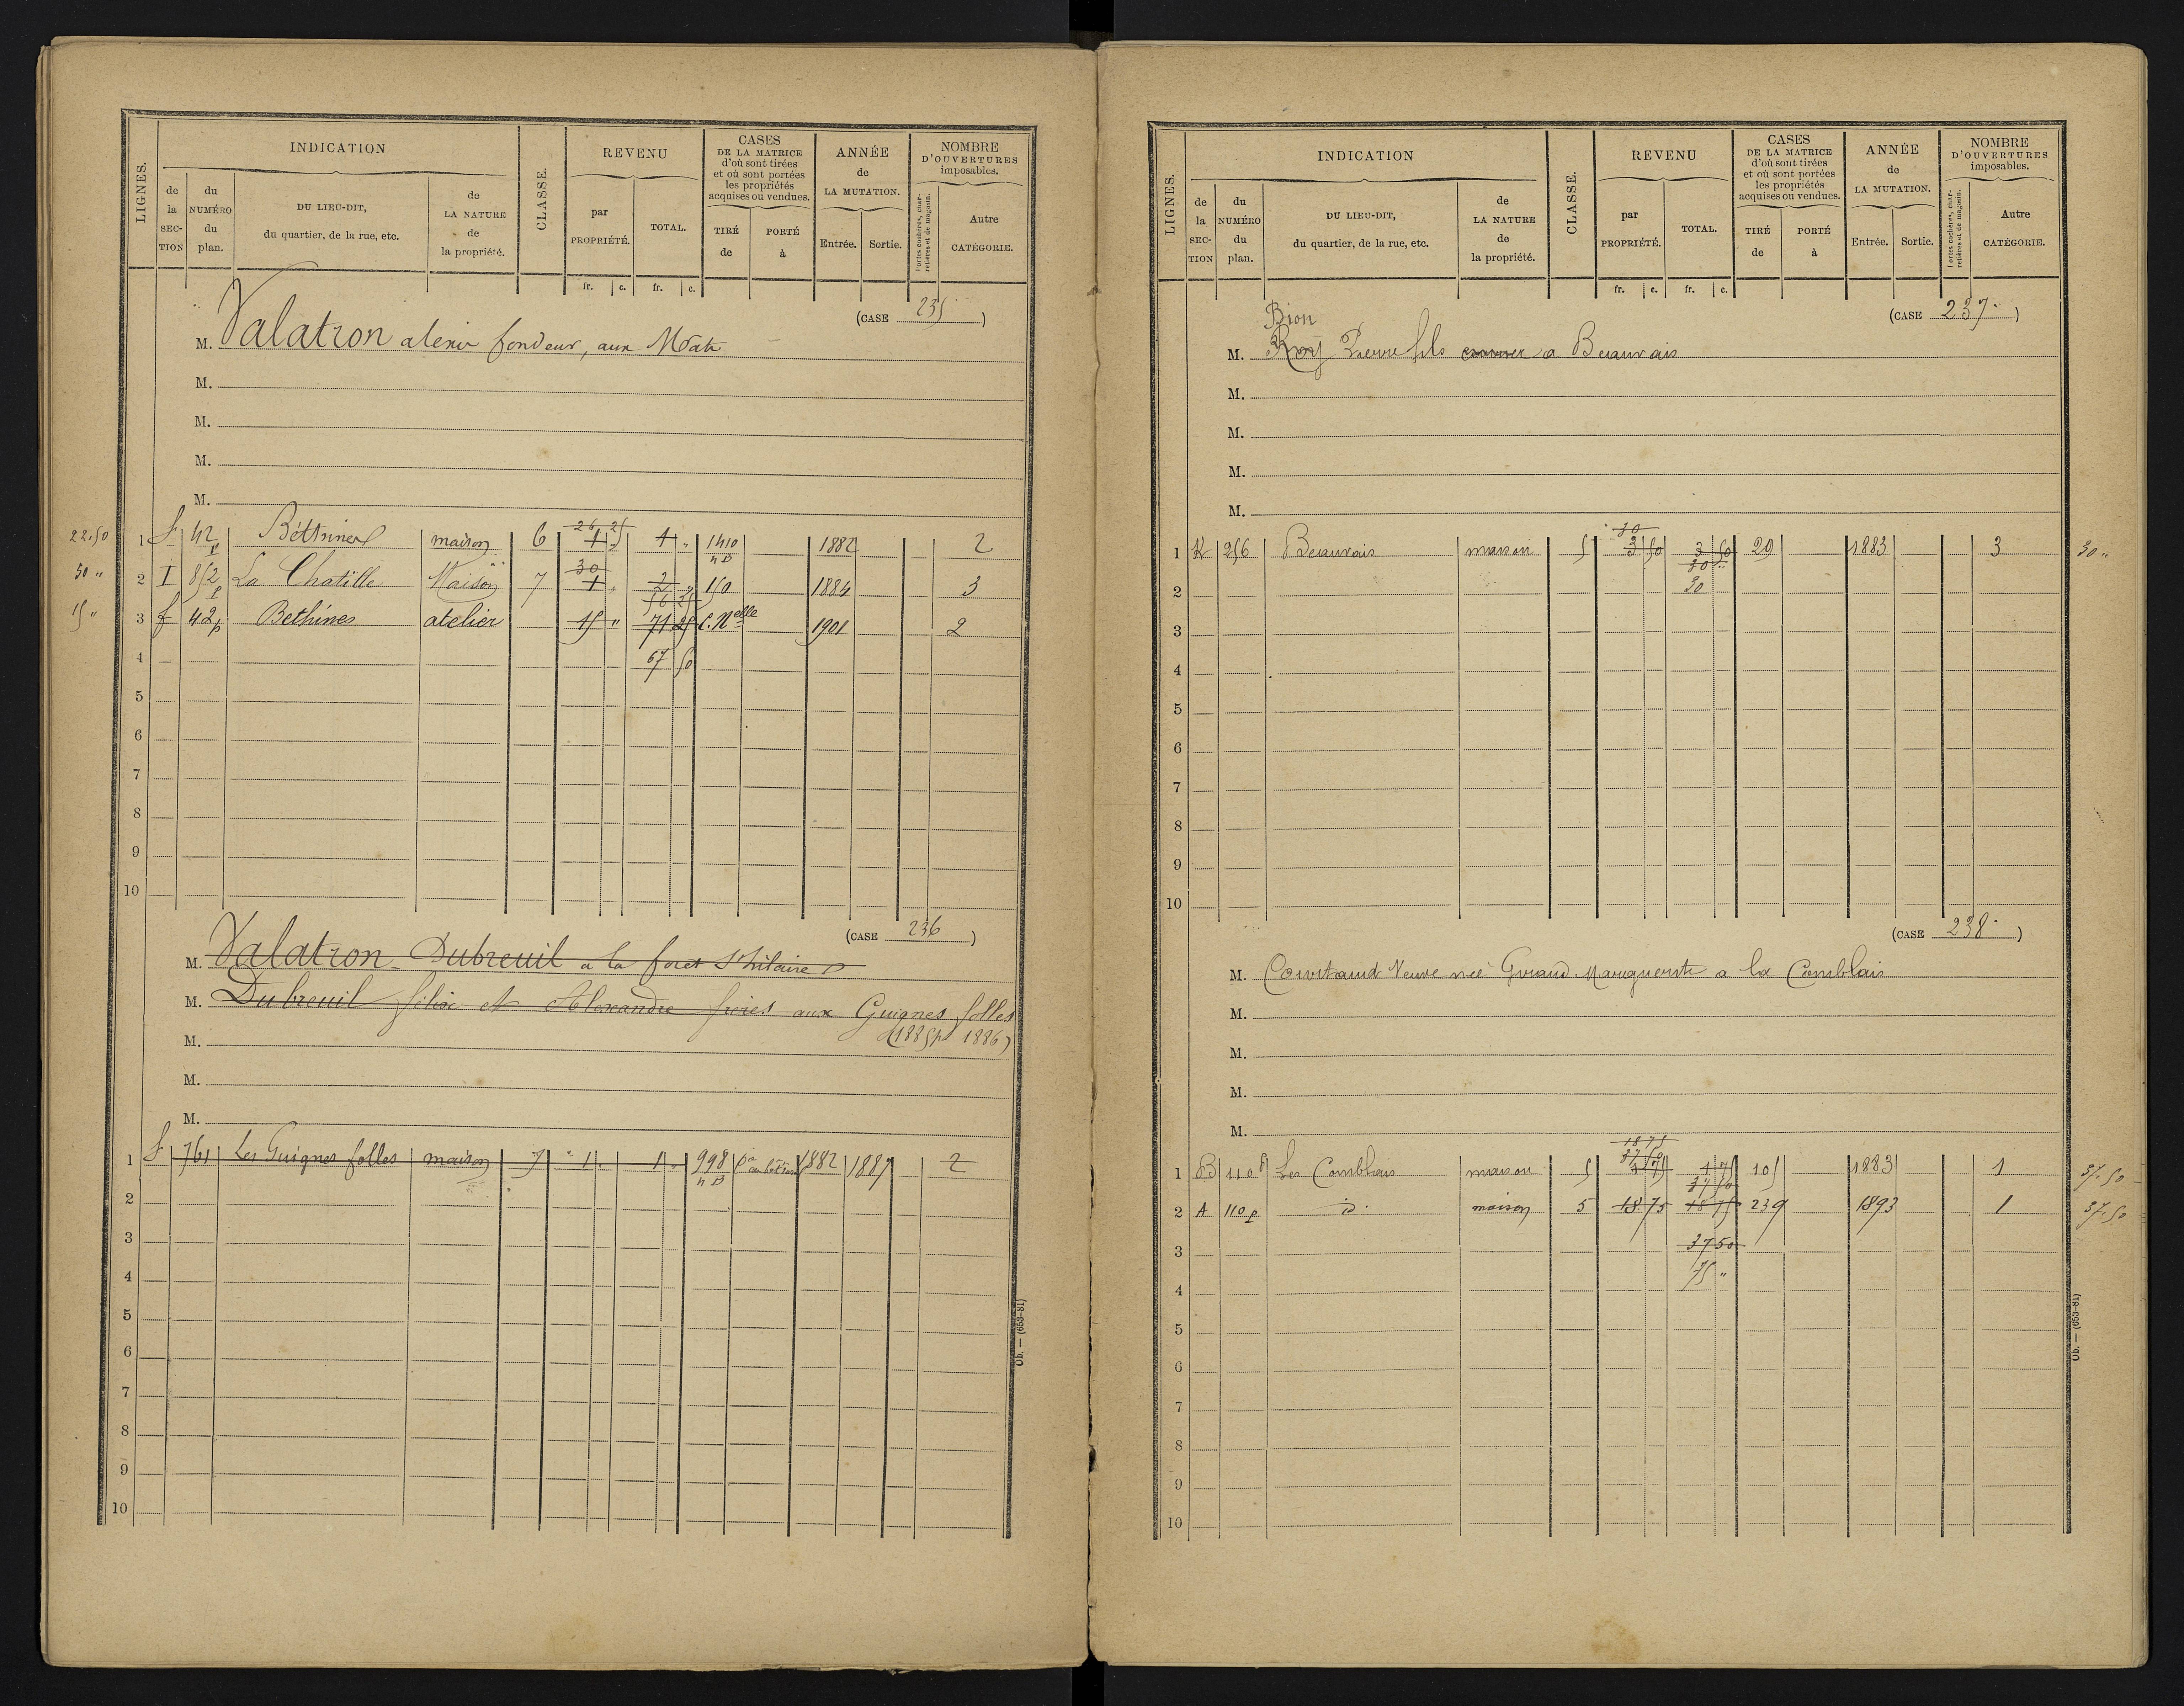 LIGNES.
INDICATION
de la SECTION
du NUMÉRO du plan.
DU LIEU-DIT, du quartier, de la rue, etc.
de LA NATURE de la propriété.
CLASSE.
REVENU
par PROPRIÉTÉ.
TOTAL.
CASES DE LA MATRICE d'où sont tirées et où sont portées les propriétés acquises ou vendues.
TIRÉ de
PORTÉ à
ANNÉE de LA MUTATION.
Entrée.
Sortie.
NOMBRE D'OUVERTURES imposables.
Portes cochères, charretières et de magasin.
Autre CATÉGORIE.
fr. c. fr. c.
(CASE 235)
M. Valatron fondeur, aux
M.
M.
M.
M.
26 25
22.50 1 f 42 p Béthines maison 6 1 " 1 " 1410 n B 1882 2
30
50 " 2 I 852 p La Chatille Maison 7 1 " 2 " 150 1884 3
56 25
15 " 3 f 42 p Bethines atelier 15 " 71 25 C. Nelle 1901 2
4 67 50
5
6
7
8
9
10
(CASE 236)
M. Valatron Dubreuil a la foret St hilaire
M. Dubreuil félix et Alexandre frères aux Guignes folles
M. (1885 pr 1886)
M.
M.
1 f 761 Les Guignes folles maison 7 1 " 1 " 998 n B 1882 1887 2
2
3
4
5
6
7
8
9
10
Ob. — (653-81)
LIGNES.
INDICATION
de la SECTION
du NUMÉRO du plan.
DU LIEU-DIT, du quartier, de la rue, etc.
de LA NATURE de la propriété.
CLASSE.
REVENU
par PROPRIÉTÉ.
TOTAL.
CASES DE LA MATRICE d'où sont tirées et où sont portées les propriétés acquises ou vendues.
TIRÉ de
PORTÉ à
ANNÉE de LA MUTATION.
Entrée.
Sortie.
NOMBRE D'OUVERTURES imposables.
Portes cochères, charretières et de magasin.
Autre CATÉGORIE.
fr. c. fr. c.
(CASE 237)
Bion
M. Roy Pierre fils a Beauvais
M.
M.
M.
M.
30
1 K 256 Beauvais maison 5 3 50 3 50 29 1883 3 30 "
30 "
2 30
3
4
5
6
7
8
9
10
(CASE 238)
M. Courtaud Veuve née Giraud Marguerite a la Comblais
M.
M.
M.
M.
18 75
37 50
1 B 110 p Les Comblais maison 5 4 75 4 75 105 1883 1 37.50
37 50
2 A 110 p d° maison 5 18 75 18 75 239 1893 1 37.50
3 37 50
75 "
4
5
6
7
8
9
10
Ob. — (653-81)